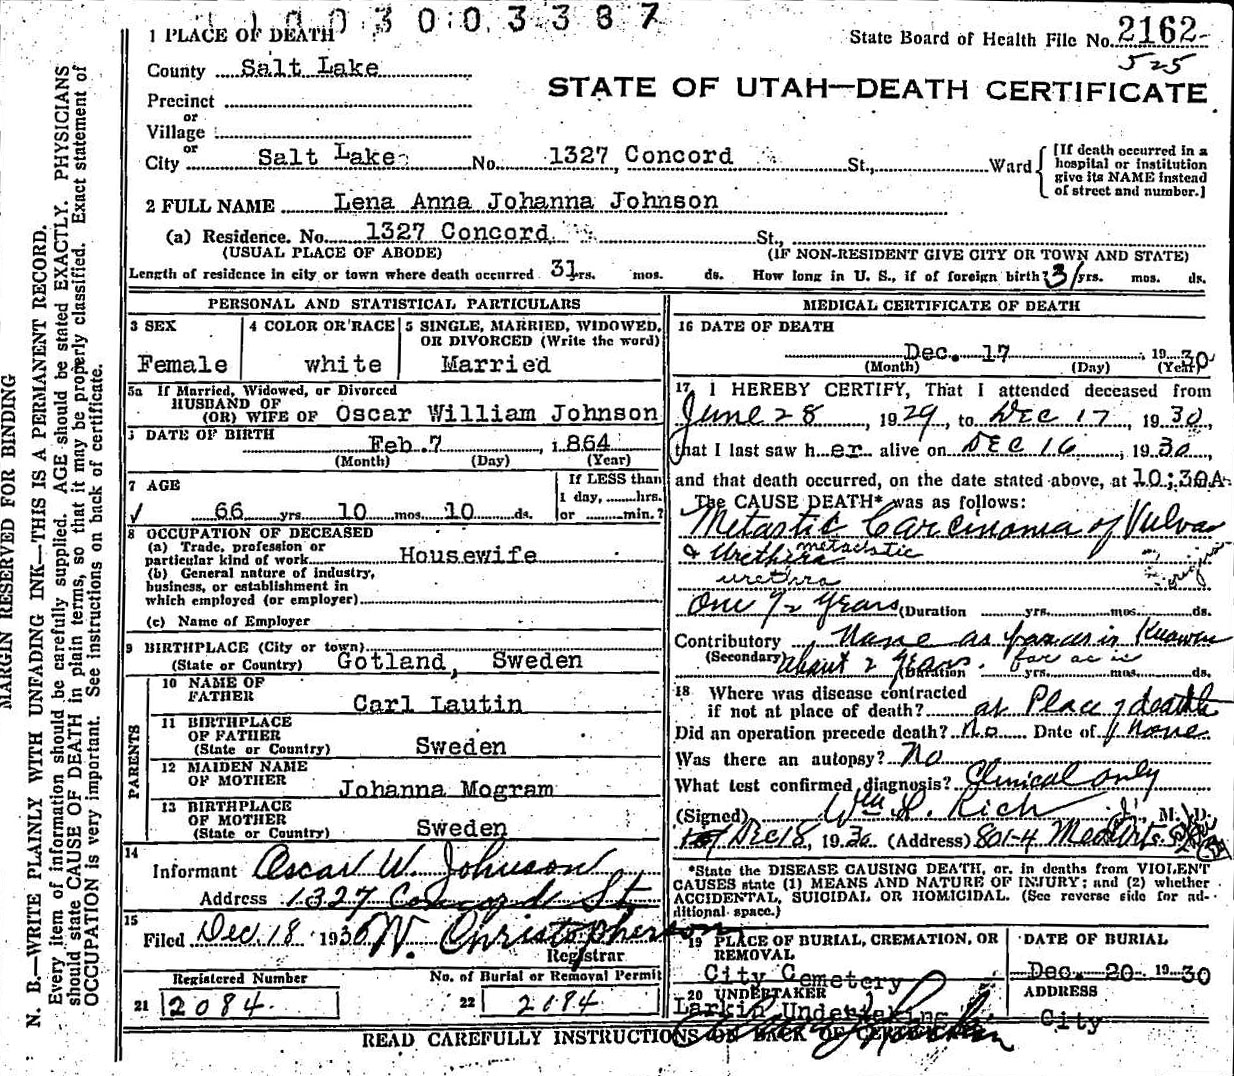 1003003387
1 PLACE OF DEATH
State Board of Health File No. 2162
525
County Salt Lake
STATE OF UTAH—DEATH CERTIFICATE
Precinct
or
Village
or
City Salt Lake No. 1327 Concord St., Ward
[If death occurred in a hospital or institution give its NAME instead of street and number.]
2 FULL NAME Lena Anna Johanna Johnson
(a) Residence. No. 1327 Concord St.,
(USUAL PLACE OF ABODE) (IF NON-RESIDENT GIVE CITY OR TOWN AND STATE)
Length of residence in city or town where death occurred 31 yrs. mos. ds. How long in U. S., if of foreign birth? 31 yrs. mos. ds.
PERSONAL AND STATISTICAL PARTICULARS
3 SEX
Female
4 COLOR OR RACE
white
5 SINGLE, MARRIED, WIDOWED, OR DIVORCED (Write the word)
Married
5a If Married, Widowed, or Divorced
HUSBAND OF
(OR) WIFE OF Oscar William Johnson
DATE OF BIRTH
Feb. 7 1864
(Month) (Day) (Year)
7 AGE
66 yrs. 10 mos. 10 ds.
If LESS than
1 day, hrs.
or min.?
8 OCCUPATION OF DECEASED
(a) Trade, profession or
particular kind of work Housewife
(b) General nature of industry,
business, or establishment in
which employed (or employer)
(c) Name of Employer
9 BIRTHPLACE (City or town)
(State or Country) Gotland, Sweden
PARENTS
10 NAME OF
FATHER Carl Lautin
11 BIRTHPLACE
OF FATHER
(State or Country) Sweden
12 MAIDEN NAME
OF MOTHER Johanna Mogram
13 BIRTHPLACE
OF MOTHER
(State or Country) Sweden
14
Informant Oscar W. Johnson
Address 1327 Concord St.
15
Filed Dec. 18 1930 W. Christopherson
Registrar
Registered Number No. of Burial or Removal Permit
21 2084 22 2084
MEDICAL CERTIFICATE OF DEATH
16 DATE OF DEATH
Dec. 17, 1930
(Month) (Day) (Year)
17 I HEREBY CERTIFY, That I attended deceased from
June 28, 1929, to Dec 17, 1930,
that I last saw her alive on Dec 16, 1930,
and that death occurred, on the date stated above, at 10:30A
The CAUSE DEATH* was as follows:
Metastic Carcinoma of Vulva
& Urethira metastatic
urethra
One 1/2 Years (Duration yrs. mos. ds.
Contributory None as far as is Known
(Secondary) about 2 Years. far as is
(Duration yrs. mos. ds.
18 Where was disease contracted
if not at place of death? at Place of death
Did an operation precede death? No Date of None
Was there an autopsy? No
What test confirmed diagnosis? Clinical only
(Signed) Wm L. Rich, M. D.
Dec 18, 1930 (Address) 801-4 Med Arts
*State the DISEASE CAUSING DEATH, or, in deaths from VIOLENT
CAUSES state (1) MEANS AND NATURE OF INJURY; and (2) whether
ACCIDENTAL, SUICIDAL OR HOMICIDAL. (See reverse side for ad-
ditional space.)
19 PLACE OF BURIAL, CREMATION, OR
REMOVAL
City Cemetery
DATE OF BURIAL
Dec. 20 1930
20 UNDERTAKER
Larkin Undertaking
ADDRESS
City
READ CAREFULLY INSTRUCTIONS ON BACK OF CERTIFICATE
MARGIN RESERVED FOR BINDING
N. B.—WRITE PLAINLY WITH UNFADING INK—THIS IS A PERMANENT RECORD.
Every item of information should be carefully supplied. AGE should be stated EXACTLY. PHYSICIANS
should state CAUSE OF DEATH in plain terms, so that it may be properly classified. Exact statement of
OCCUPATION is very important. See instructions on back of certificate.